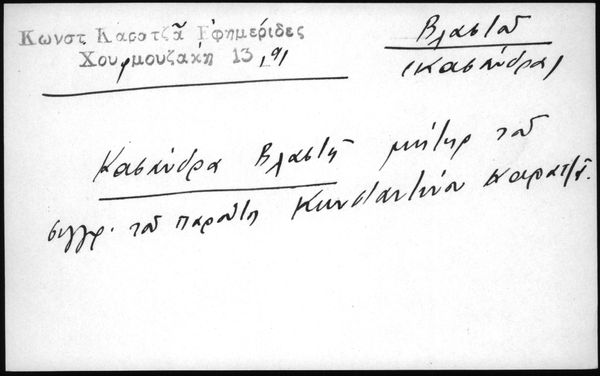 Κωνστ. Καρατζᾶ Ἐφημέρίδες
Χουρμουζάκη 13, 191
Βλαστοῦ
(Κασάνδρα)
Κασάνδρα Βλαστῆ μήτηρ τοῦ
συγγρ. τοῦ παρόντος Κωνσταντίνου Καρατζᾶ.